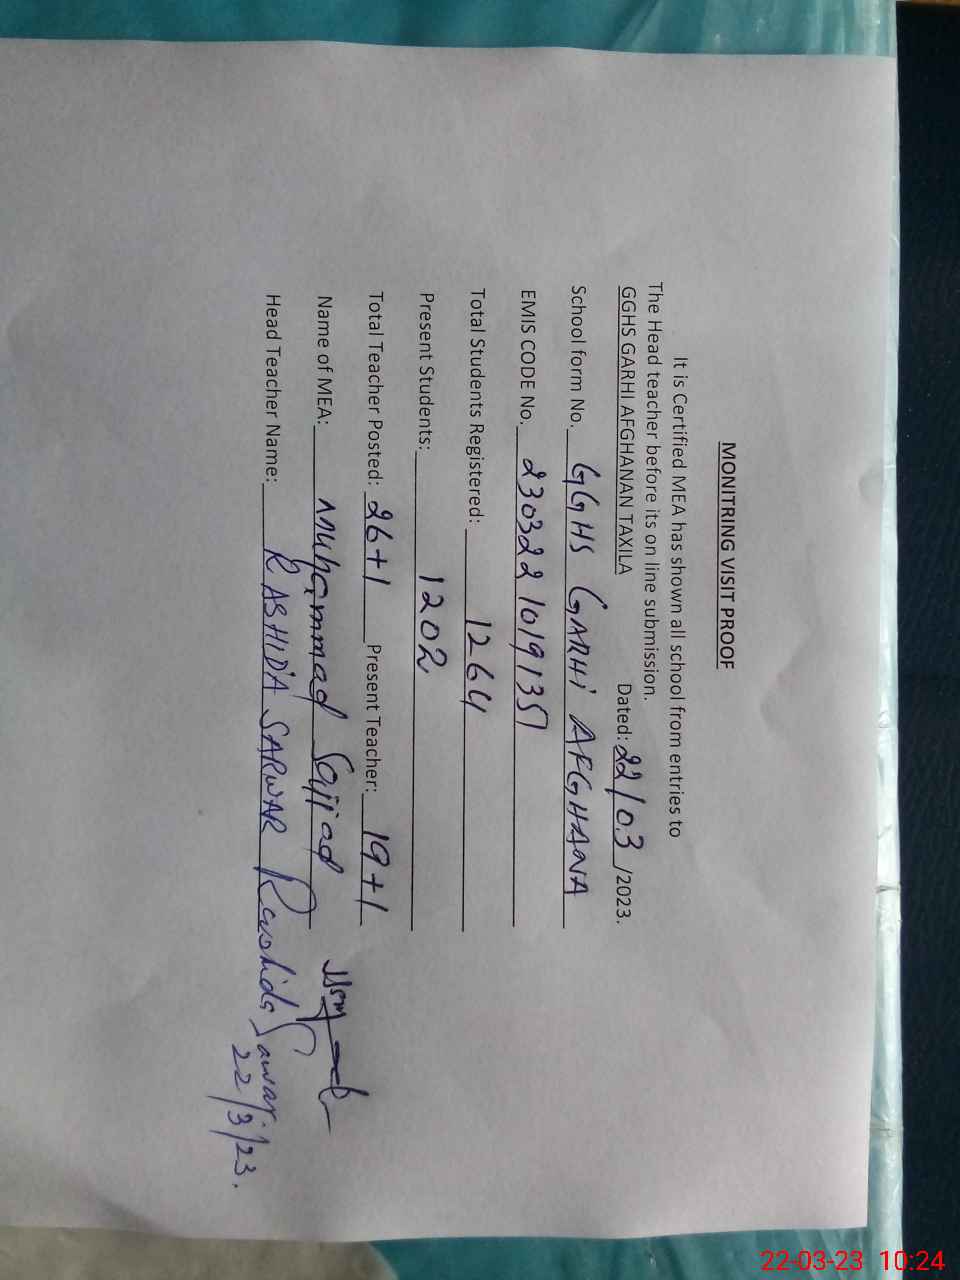 MONITRING VISIT PROOF
It is Certified MEA has shown all school from entries to
The Head teacher before its on line submission.
GGHS GARHI AFGHANAN TAXILA Dated: 22/03/2023.
School form No. GGHS GARHI AFGHANA
EMIS CODE No. 230322 10191351
Total Students Registered: 1264
Present Students: 1202
Total Teacher Posted: 26+1 Present Teacher: 19+1
Name of MEA: Muhammad Sajjad
Head Teacher Name: RASHIDA SARWAR Rashida Sarwar
22/3/23.
22-03-23 10:24